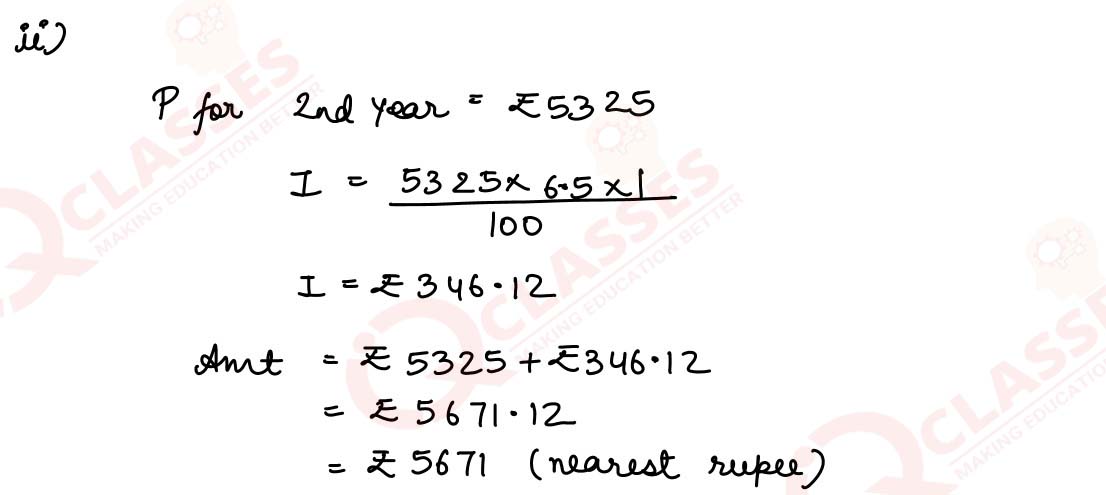 ii)
P for 2nd year = ₹5325
I = 5325 × 6.5 × 1
100
I = ₹346.12
Amt = ₹5325 + ₹346.12
= ₹5671.12
= ₹5671 (nearest rupee)
CLASSES
MAKING EDUCATION BETTER
CLASSES
MAKING EDUCATION BETTER
CLASSES
MAKING EDUCATION